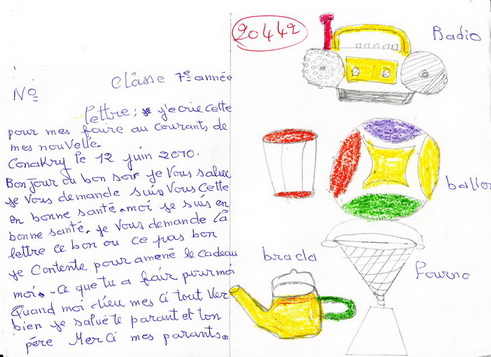 20442
Radio
Classe 7e année
No
lettre; j'ecrie cette
pour mes faire au courants de
mes nouvelle.
Conakry le 12 juin 2010.
Bonjour ou bon soir je Vous salue
je Vous demande suis Vous cette
en bonne santé. moi je suis en
bonne santé. je Vous demande la
lettre ce bon ou ce pas bon
je Contente pour amené le cadeau
moi. Ce que tu a fair pour moi
Quand moi dieu mes ci tout Ver
bien je salue te parant et ton
père Mer Ci mes parants.
ballon
brada
Fourno